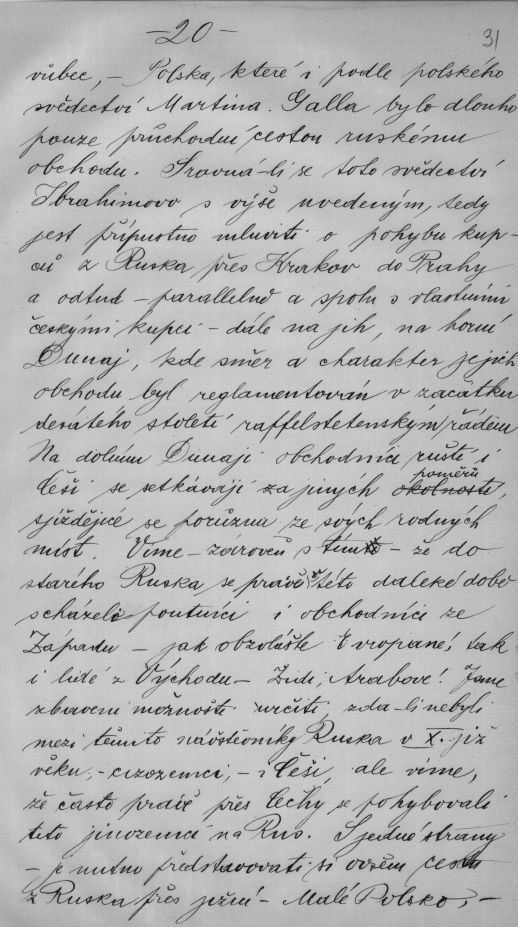 -20-
31
vůbec, - Polska, které i podle polského
svědectví Martina Galla bylo dlouho
pouze průchodní cestou ruskému
obchodu. Srovná-li se toto svědectví
Ibrahimovo s výše uvedeným, tedy
jest přípustno mluviti o pohybu kup-
ců z Ruska přes Krakov do Prahy
a odtud - parallelně a spolu s vlastními
českými kupci - dále na jih, na horní
Dunaj, kde směr a charakter jejich
obchodu byl reglamentován v začátku
desátého století raffelstetenským řádem
Na dolním Dunaji obchodníci ruští i
Češi se setkávají za jiných okolností poměrů,
sjíždějíce se porůzna ze svých rodných
míst. Víme - zároveň s tímto - že do
starého Ruska se právě v této daleké době
scházeli poutníci i obchodníci ze
Západu - jak obzvláště Evropané, tak
i lidé z Východu - Židi, Arabové. Jsme
zbaveni možnosti určiti, zda-li nebyli
mezi těmito návštěvníky Ruska v X. již
věku, - cizozemci, - i Češi, ale víme,
že často právě přes Čechy se pohybovali
tito jinozemci na Rus. S jedné strany
- je nutno představovati si ovšem cestu
z Ruska přes jižní - Malé Polsko, -